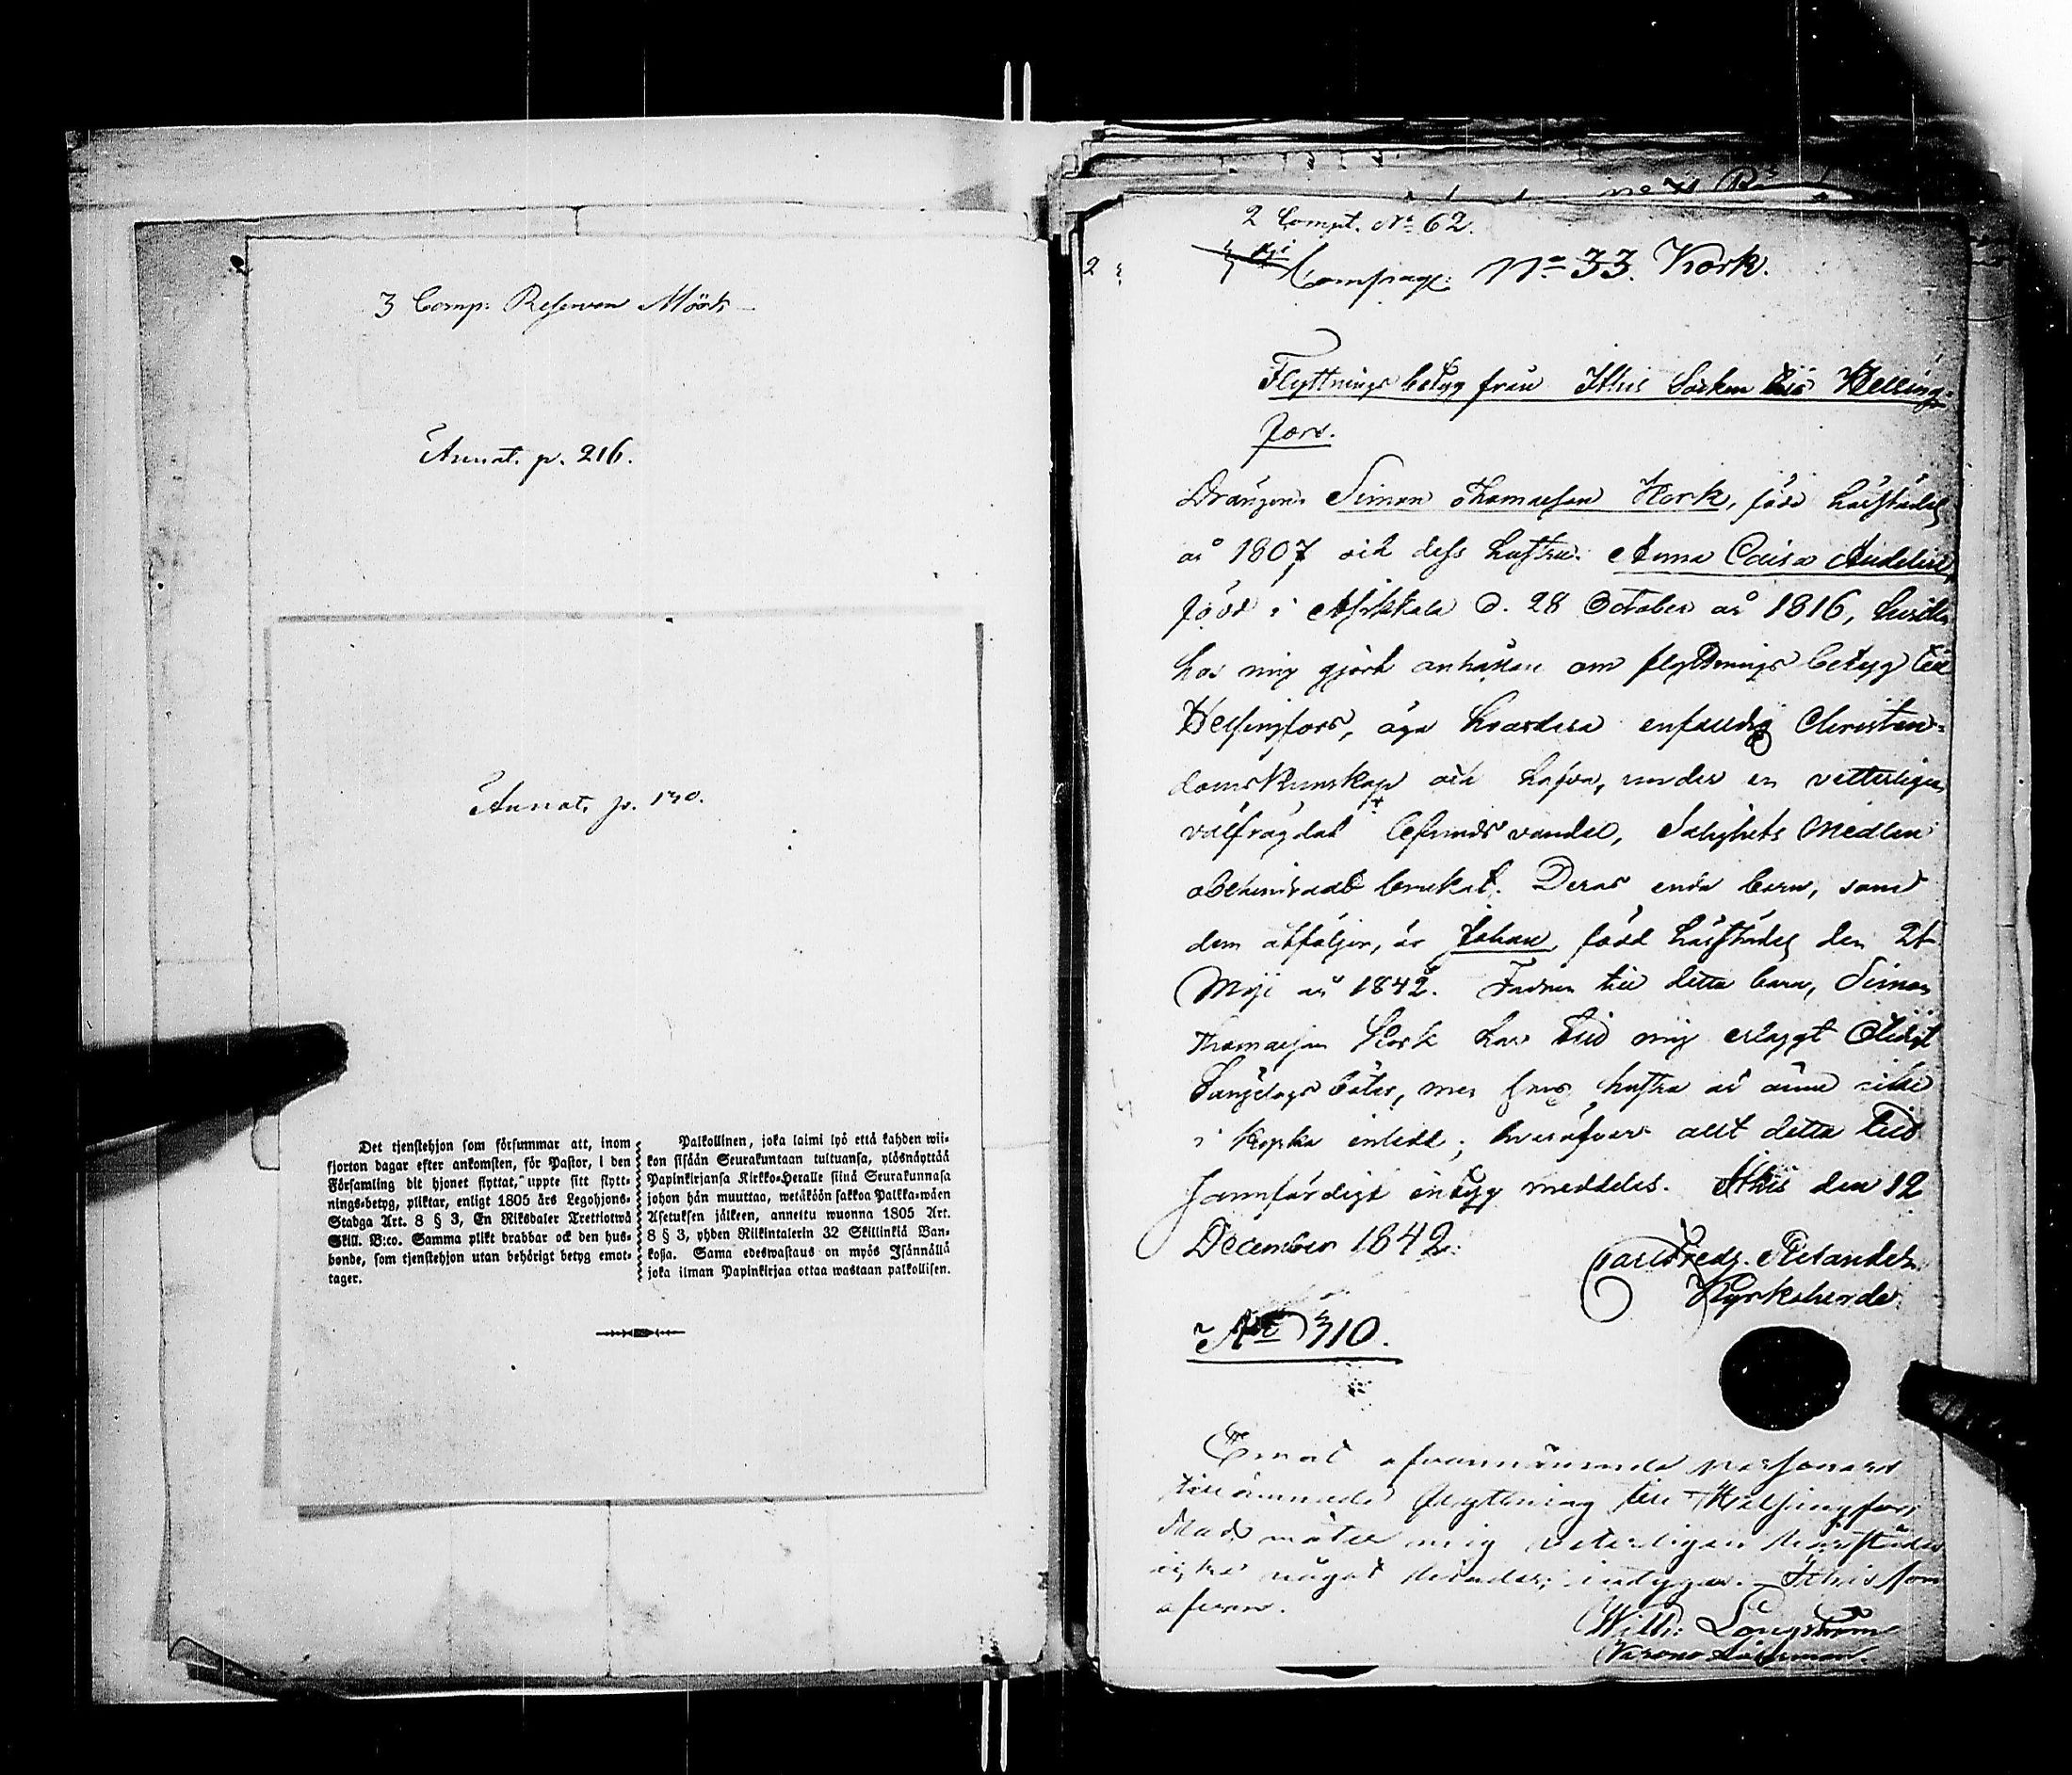 3 Comp: Reserven
Annot. p. 216.
Annot. p. 130.
Det tjenstehjon som försummar att, inom
fjorton dagar efter ankomsten, för Pastor, i den
Församling dit hjonet flyttat, uppte sitt flytt-
nings-betyg, pliktar, enligt 1805 års Legohjons-
Stadga Art. 8 § 3, En Riksdaler Trettiotwå
Skill. B:co. Samma plikt drabbar ock den hus-
bonde, som tjenstehjon utan behörigt betyg emot-
tager.
Palkollinen, joka laimi lyö että kahden wii-
kon sisään Seurakuntaan tultuansa, ylösnäyttää
Papinkirjansa Kirkko-Heralle siinä Seurakunnasa
johon hän muuttaa, wetäköön sakkoa Palkka-wäen
Asetuksen jälkeen, annettu wuonna 1805 Art.
8 § 3, yhden Riikintalerin 32 Skillinkiä Ban-
kosa. Sama edeswastaus on myös Isännällä
joka ilman Papinkirjaa ottaa wastaan palkollisen.
2 Compt. No 62.
2
Compagn: No 33. Kork.
Flyttnings betyg från Ithis Socken till Helsing-
fors.
Drängen Simon Thomasson Kork, född härstädes
år 1807 och dess hustru Anna Caisa
född i Asikkala d. 28 October år 1816, hvilka
hos mig gjort anhållan om flyttnings betyg till
Helsingfors, äga hvardera enfaldig Christen-
domskunskap och hafva, under en vetterligen
välfrägdad lefnads vandel, Salighets Medlen
obehindradt brukat. Deras enda barn, som
dem åtföljer, är Johan, född härstädes den 21
Maji år 1842. Fadren till detta barn, Simon
Thomasson Kork har till mig erlagt
böter, men hustru är ännu icke
i kyrka inledd; hvaröfver allt detta till
sannfärdigt intyg meddelas. Ithis den 12
December 1842.
Carl Fredr. Melander
Kyrkoherde.
No 310.
Emot ofvannämnde personers
tillämnade flyttning till Helsingfors
Stad möter mig veterligen härstädes
icke något hinder; intygar. Ithis som
ofvan.
Wilh: Långström
Krono Länsman.